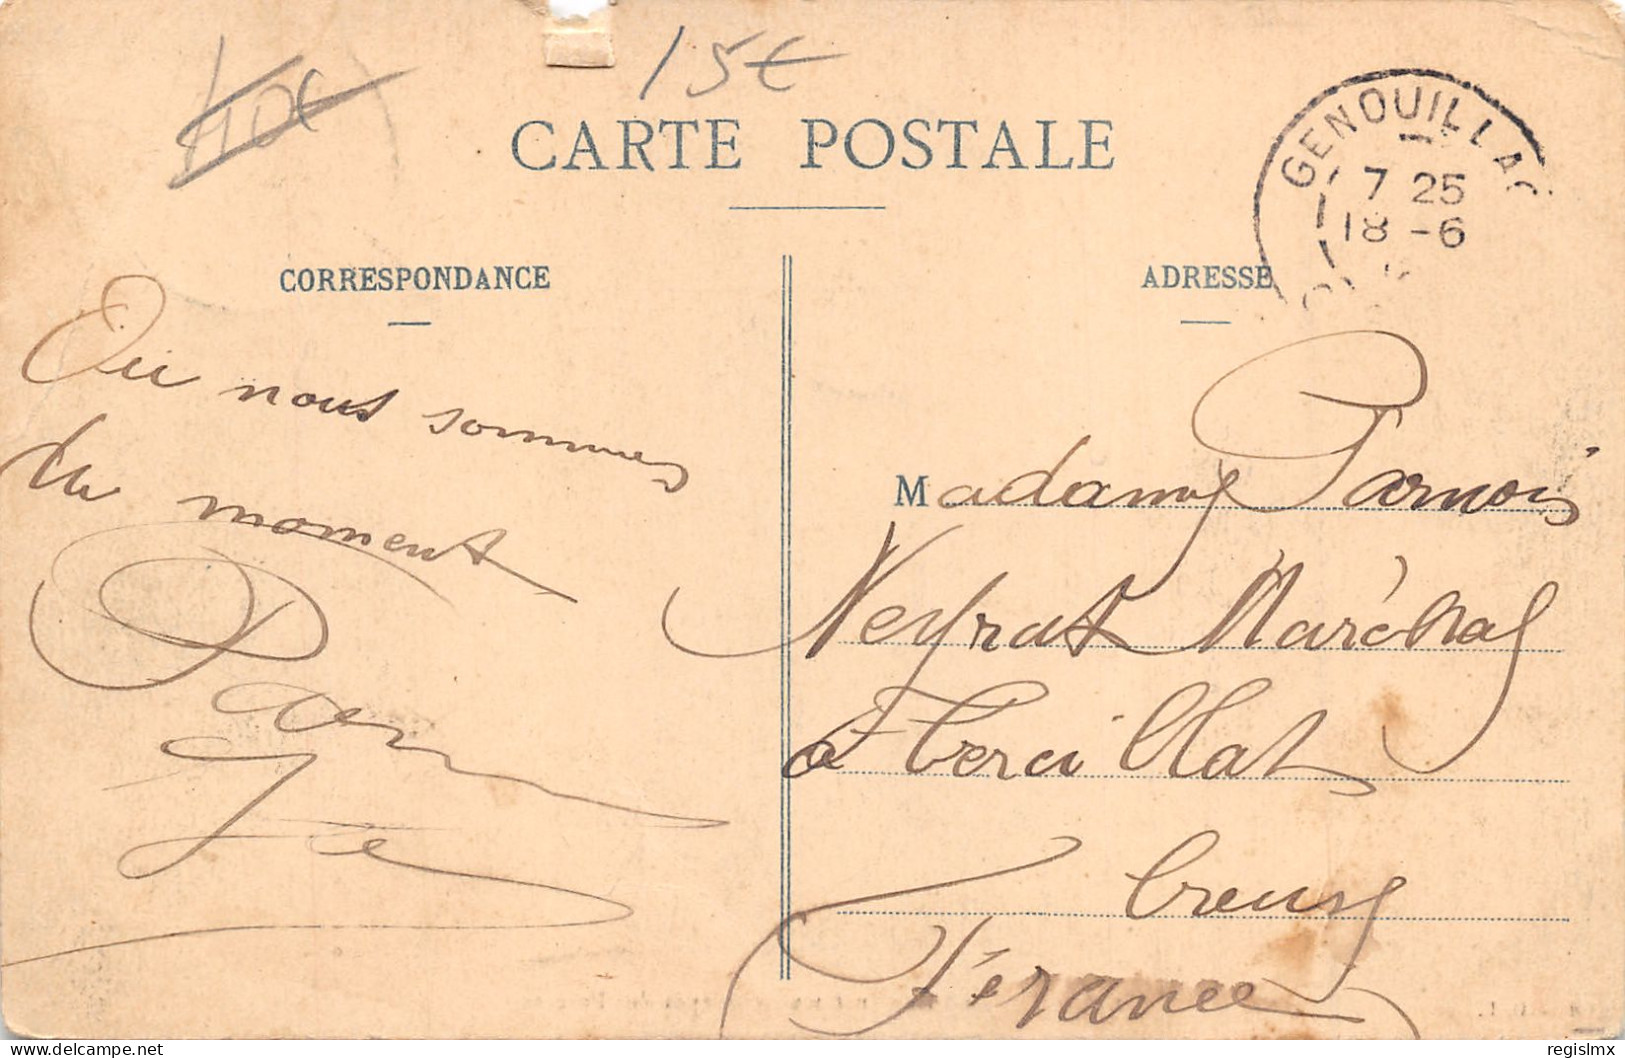 10€
15€
CARTE POSTALE
GENOUILLAC
7 25
18 -6
CORRESPONDANCE
ADRESSE
Ou nous sommes
du moment
Madame Parnois
Neyrat Maréchal
à Bercillat
Creuse
France
regislmx